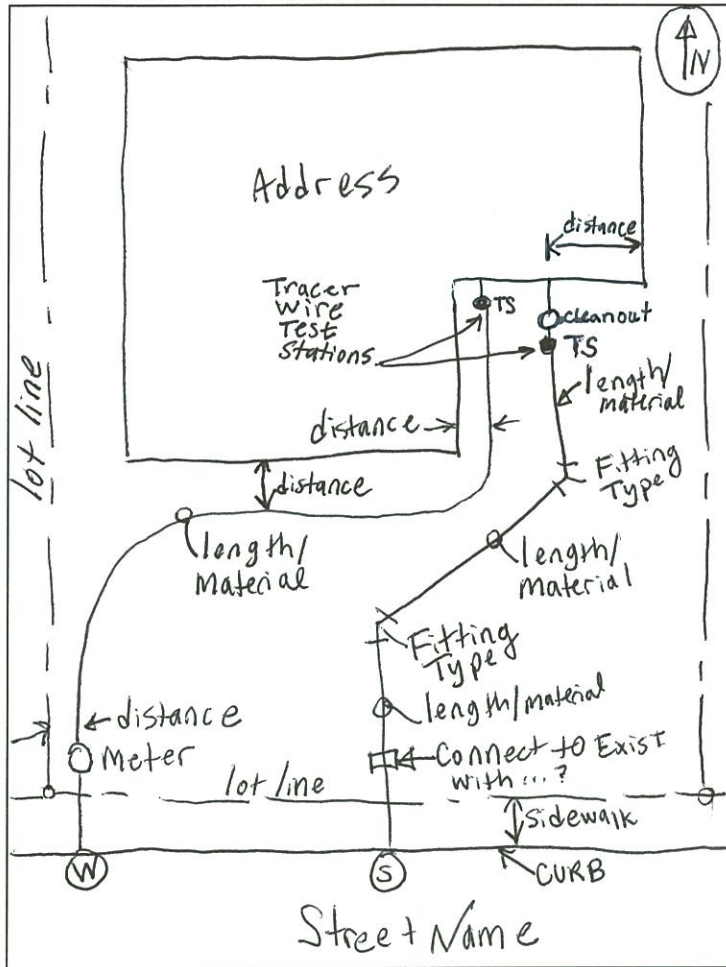 N
Address
distance
Tracer
Wire
Test
Stations
TS
cleanout
TS
length/
material
lot line
distance
distance
Fitting
Type
length/
material
length/
material
Fitting
Type
distance
length/material
Meter
Connect to Exist
with...?
lot line
sidewalk
W
S
CURB
Street Name